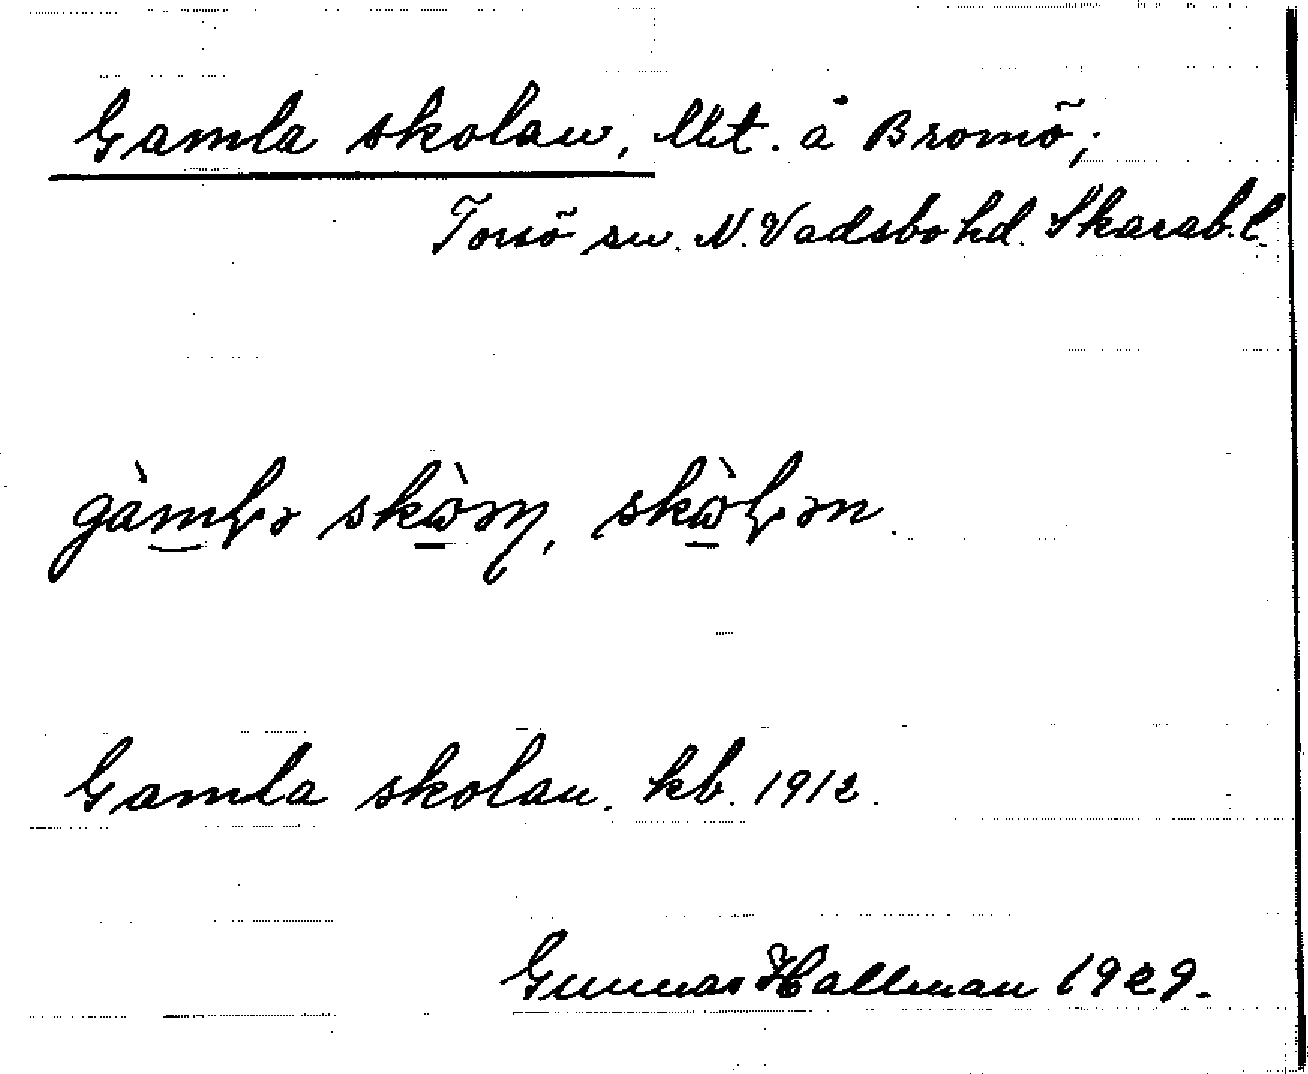 Gamla skolan, lht. å Bromö,
Torsö sn. N. Vadsbo hd. Skarab. l.
gàmɽə skɷ̀əɳ, skɷ̀ɽən.
Gamla skolan. kb. 1912.
Gunnar Hallman 1929.